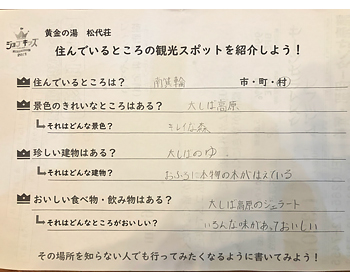 黄金の湯 松代荘
ジョブキッズ
住んでいるところの観光スポットを紹介しよう！
住んでいるところは？ 南箕輪 市・町・村
景色のきれいなところはある？ 大しば高原
それはどんな景色？ キレイな森
珍しい建物はある？ 大しばのゆ
それはどんな建物？ おふろに本物の木がはえている
おいしい食べ物・飲み物はある？ 大しば高原のジェラート
それはどんなところがおいしい？ いろんな味があっておいしい
その場所を知らない人でも行ってみたくなるように書いてみよう！